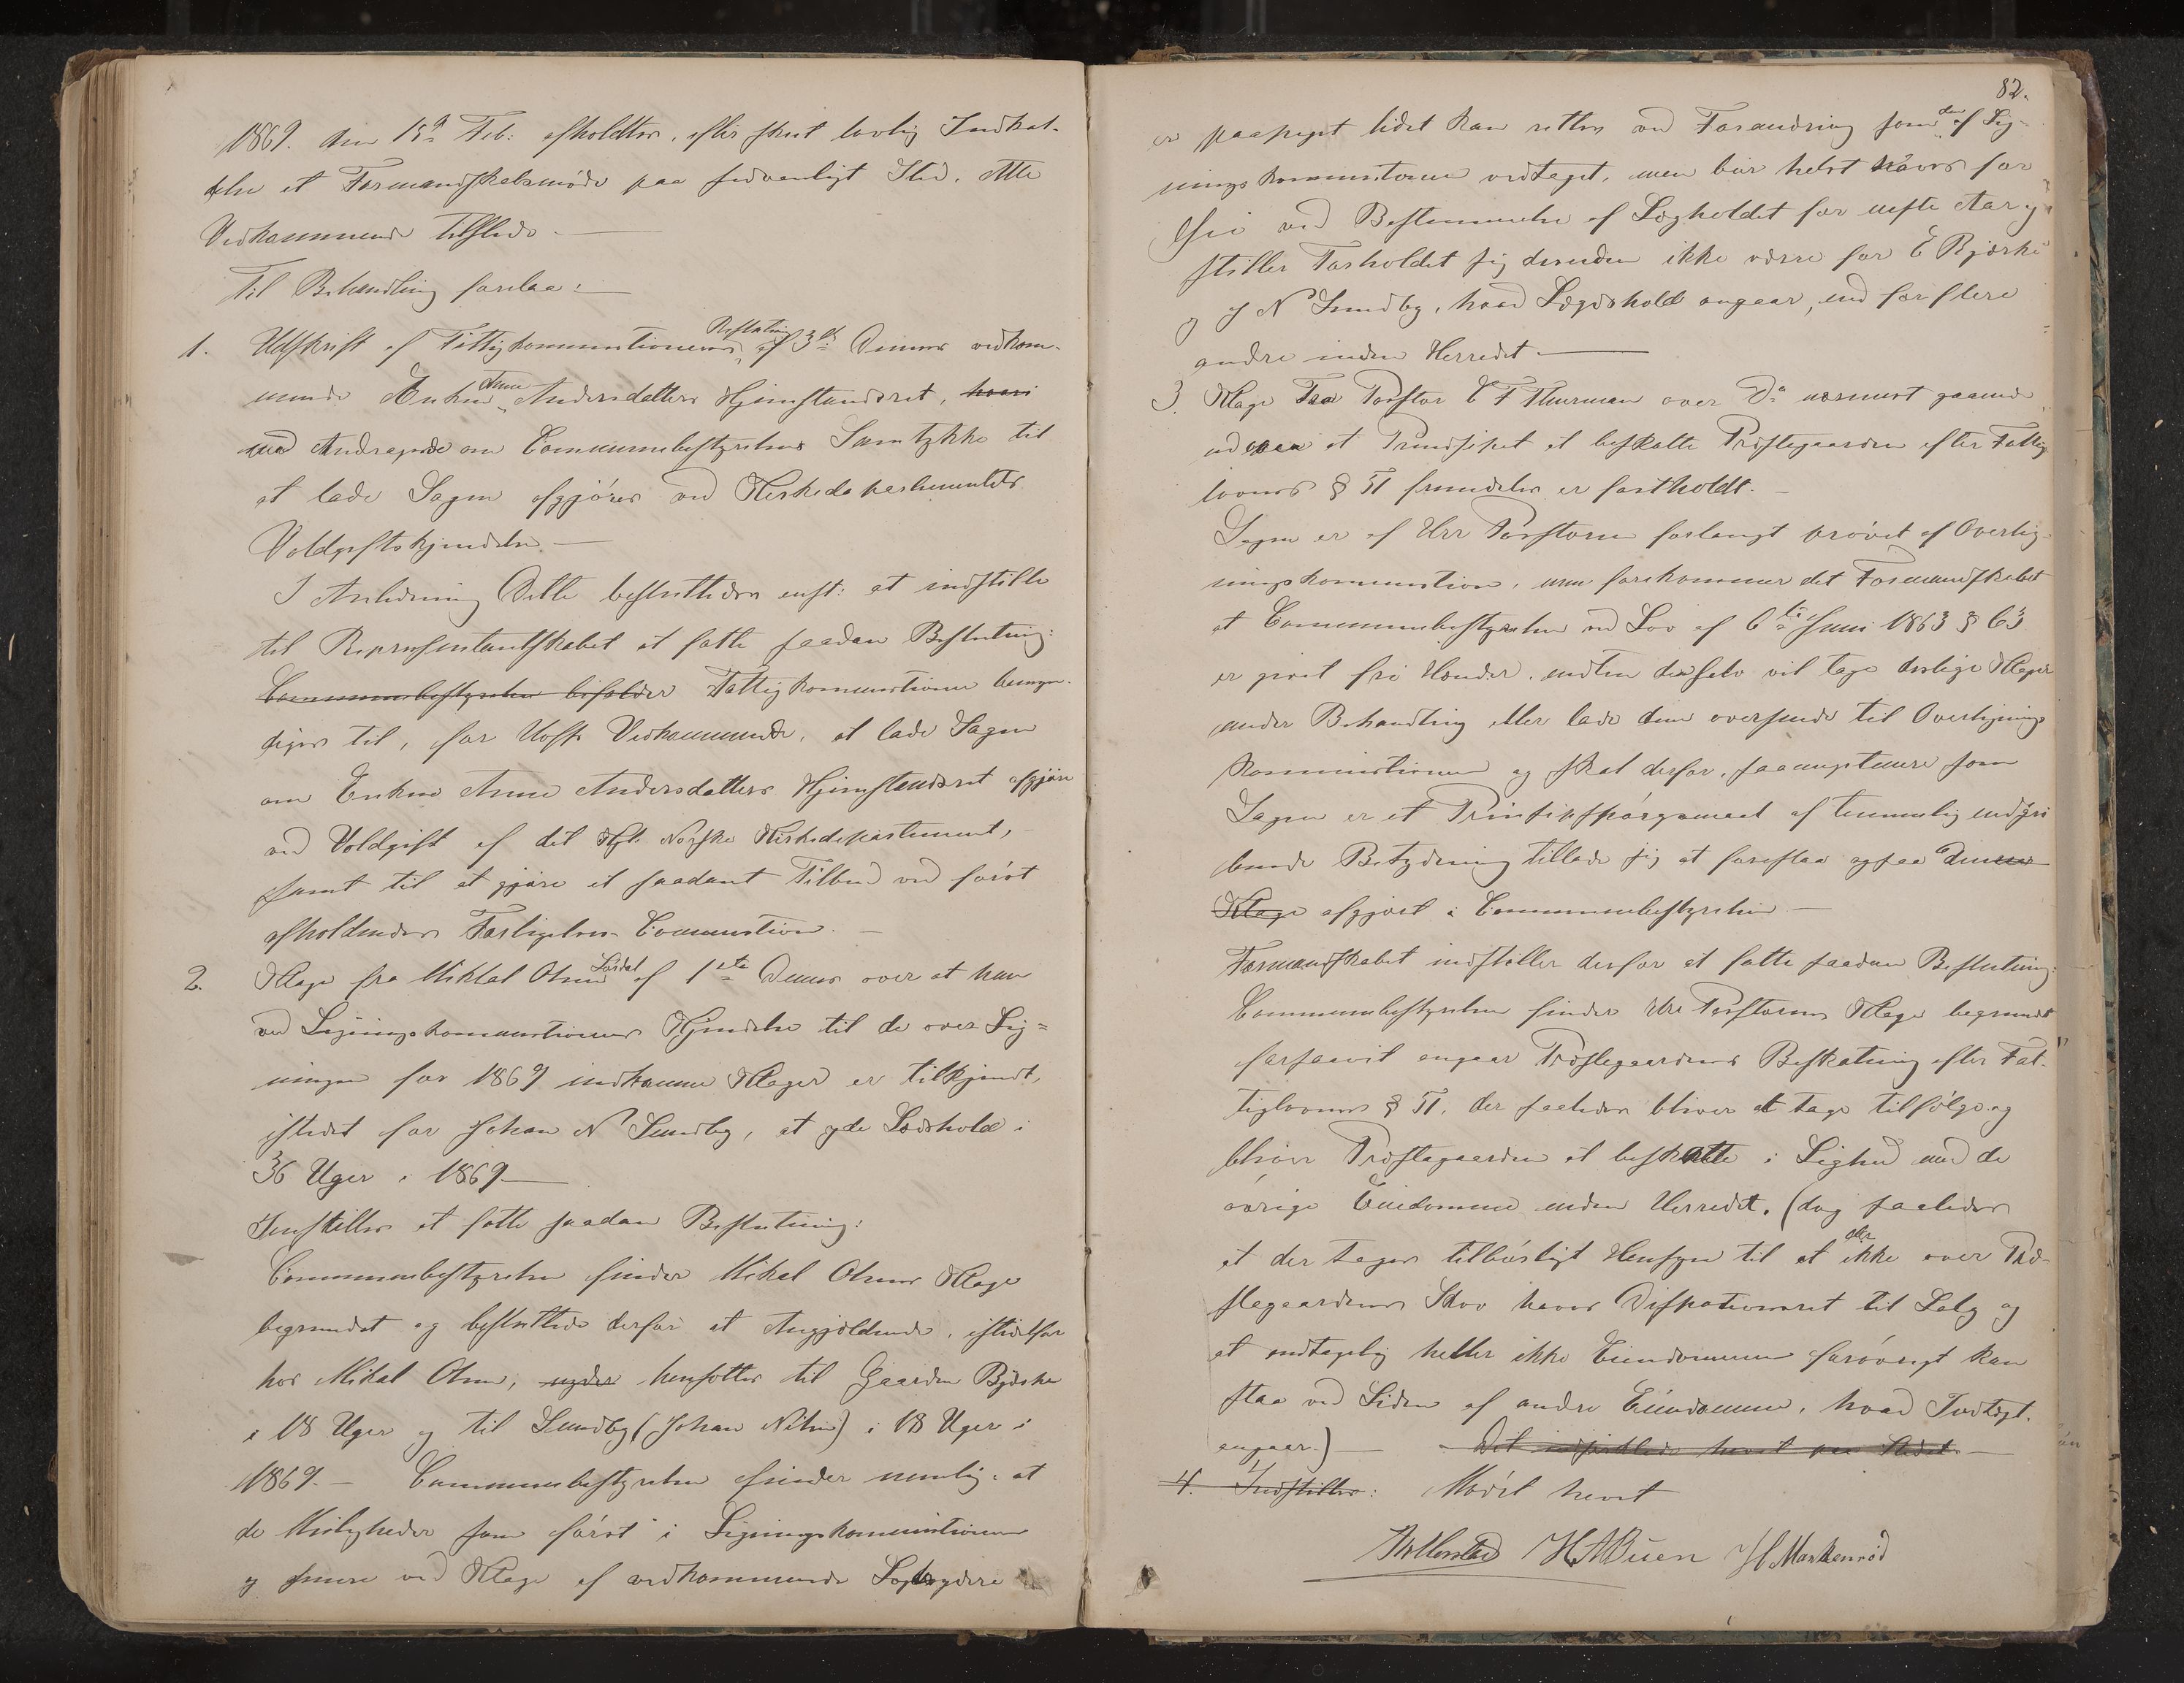 1869. den 15de Feb: afholdtes, efter skeet lovlig Indkal-
delse et Formandskabsmöde paa sedvanligt Sted. Alle
Vedkommende tilstede. —
Til Behandling forelaa: —
1. Udskrift af Fattigkommissionens Resolution af 3de Dennes vedkom-
mende Enken Anne Andersdatters Hjemstandsret, hvori
med Andragende om Communebestyrelsens Samtykke til
at lade Sagen afgjöres ved Kirkedepartementets
Voldgiftskjendelse. —
I Anledning Dette besluttedes enst: at indstille
til Repræsentantskabet at fatte saadan Beslutning:
Communebestyrelsen bifalder Fattigkommissionen bemyn-
diges til, for Vort Vedkommende, at lade Sagen
om Enken Anne Andersdatters Hjemstandsret afgjöre
ved Voldgift af det Kgl. Norske Kirkedepartement,
samt til at gjöre et saadant Tilbud ved först
afholdendes Forligelses Commission. —
2. Klage fra Mikkal Olsen Lördal af 1ste Dennes over at han
ved Ligningskommissionens Kjendelse til de over Lig=
ningen for 1869 indkomne Klager er tilkjendt,
istedet for Johan N Sundby, at yde Lægdshold i
36 Uger i 1869 —
Indstilles at fatte saadan Beslutning:
Communebestyrelsen finder Mikal Olsens Klage
begrundet og besluttede derfor at Angjældende, istedetfor
hos Mikal Olsen, nyder hensættes til Gaarden Bjerke
i 18 Uger og til Sundby (Johan Nilsen) i 18 Uger i
1869. — Communebestyrelsen finder nemlig, at
de Misligheder som först i Ligningskommissionen
og senere ved Klage af vedkommende Lægdsydere
82.
er paapeget lidet kan rettes ved Forandring som den af Lig-
nings kommissionen vedtaget, men bör helst haves for
Öie ved Bestemmelse af Lægholdet for neste Aar og
stiller Forholdet sig desuden ikke værre for E Bjerke
og J N Sundby, hvad Lægdshold angaar, end for flere
andre inden Herredet. —
3. Klage Fra Pastor C F Thurman over Do nærmest gaaende
ud paa at Prindsipet at beskatte Præstegaarden efter Fattig
lovens § 51 fremdeles er fastholdt. —
Sagen er af Hrr Pastoren forlangt prövet af Overlig-
nings kommission, men forekommer det Formandskabet
at Communebestyrelsen ved Lov af 6te Juni 1863 § 63
er givet fri Hænder, enten den selv vil tage deslige Klager
under Behandling eller lade dem oversende til Overlignings
kommissionen og skal derfor, saameget mere som
Sagen er et Prinsipspörgsmaal af temmelig indgri
bende Betydning tillade sig at foreslaa ogsaa Dennes
Klage afgjort i Communebestyrelsen —
Formandskabet indstiller derfor at fatte saadan Beslutning:
Communebestyrelsen finder Hrr Pastorens Klage begrundet
forsaavit angaar Præstegaardens Beskatning efter Fat-
tiglovens § 51, der saaledes bliver at tage tilfölge og
bliver Præstegaarden at beskatte i Lighed med de
övrige Eiendomme inden Herredet. (dog saaledes
at der tages tilbörligt Hensyn til at der ikke over Præ-
stegaardens Skov haves Dispositionsret til Salg og
at endelig heller ikke Eiendommen foröverigt kan
staa ved Siden af andre Eiendomme, hvad Indtægt.
angaar.) — Det indstilledes hævet paa Stedet. —
4. Indstilles: Mödet hævet
HABuen H Markerröd